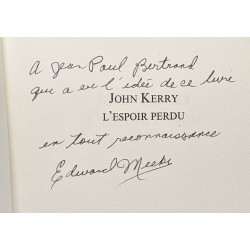 A Jean Paul Bertrand
qui a eu l'idée de ce livre
JOHN KERRY
L'ESPOIR PERDU
en tout reconnaissance
Edward